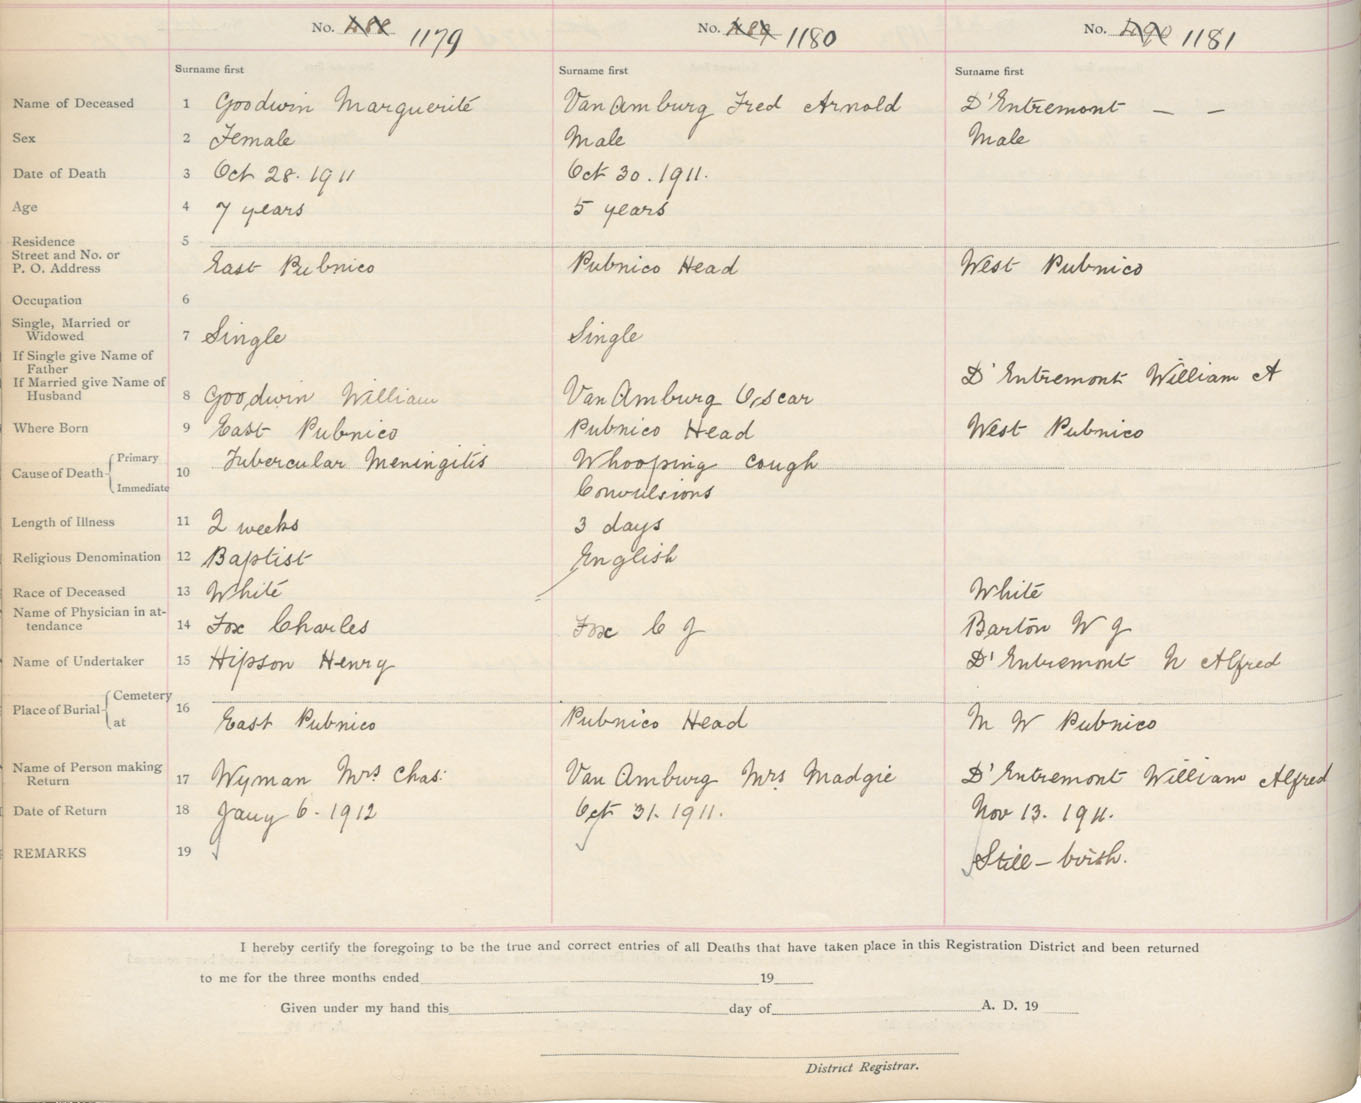 No. 488 1179 No. 489 1180 No. 490 1181
Surname first Surname first Surname first
Name of Deceased 1 Goodwin Marguerite Van Amburg Fred Arnold D'Entremont — —
Sex 2 Female Male Male
Date of Death 3 Oct 28. 1911 Oct 30. 1911.
Age 4 7 years 5 years
Residence 5
Street and No. or
P. O. Address East Pubnico Pubnico Head West Pubnico
Occupation 6
Single, Married or
Widowed 7 Single Single
If Single give Name of
Father
If Married give Name of D'Entremont William A
Husband 8 Goodwin William Van Amburg Oscar
Where Born 9 East Pubnico Pubnico Head West Pubnico
Cause of Death Primary 10 Tubercular Meningitis Whooping Cough
Immediate Convulsions
Length of Illness 11 2 weeks 3 days
Religious Denomination 12 Baptist English
Race of Deceased 13 White White
Name of Physician in at-
tendance 14 Fox Charles Fox C J Barton W J
Name of Undertaker 15 Hipson Henry D'Entremont N Alfred
Place of Burial Cemetery 16
at East Pubnico Pubnico Head M W Pubnico
Name of Person making
Return 17 Wyman Mrs Chas: Van Amburg Mrs Madgie D'Entremont William Alfred
Date of Return 18 Jany 6. 1912 Oct 31. 1911. Nov 13. 1911.
REMARKS 19 Still-birth.
I hereby certify the foregoing to be the true and correct entries of all Deaths that have taken place in this Registration District and been returned
to me for the three months ended 19
Given under my hand this day of A. D. 19
District Registrar.